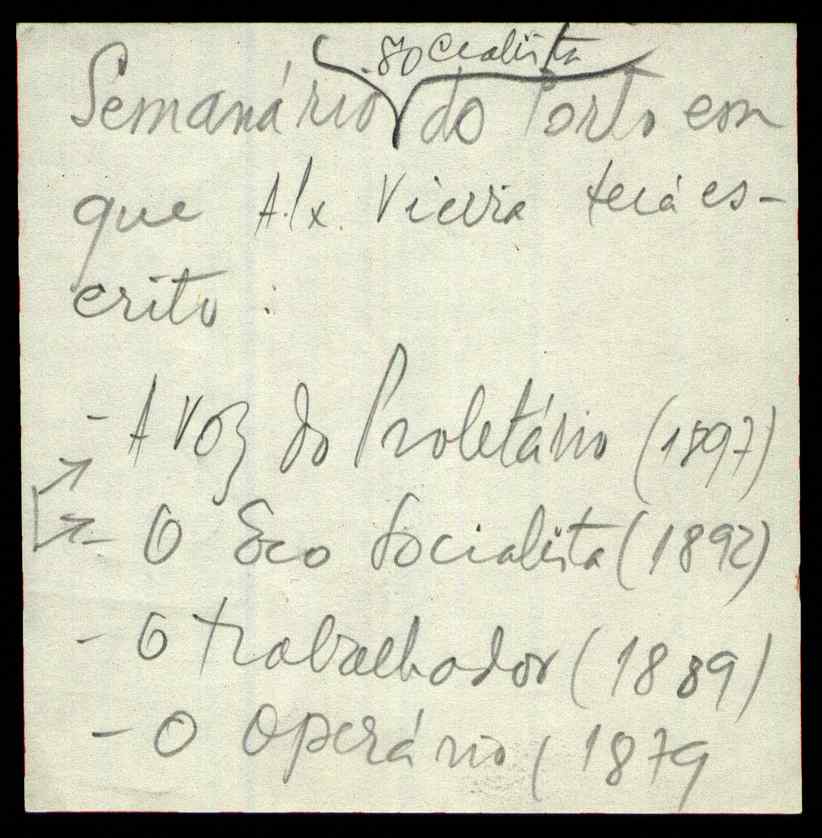 socialista
Semanário do Porto em
que Alx. Vieira terá es-
crito :
- A Voz do Proletário (1897)
- O Eco Socialista (1892)
- O trabalhador (1889)
- O Operário (1879